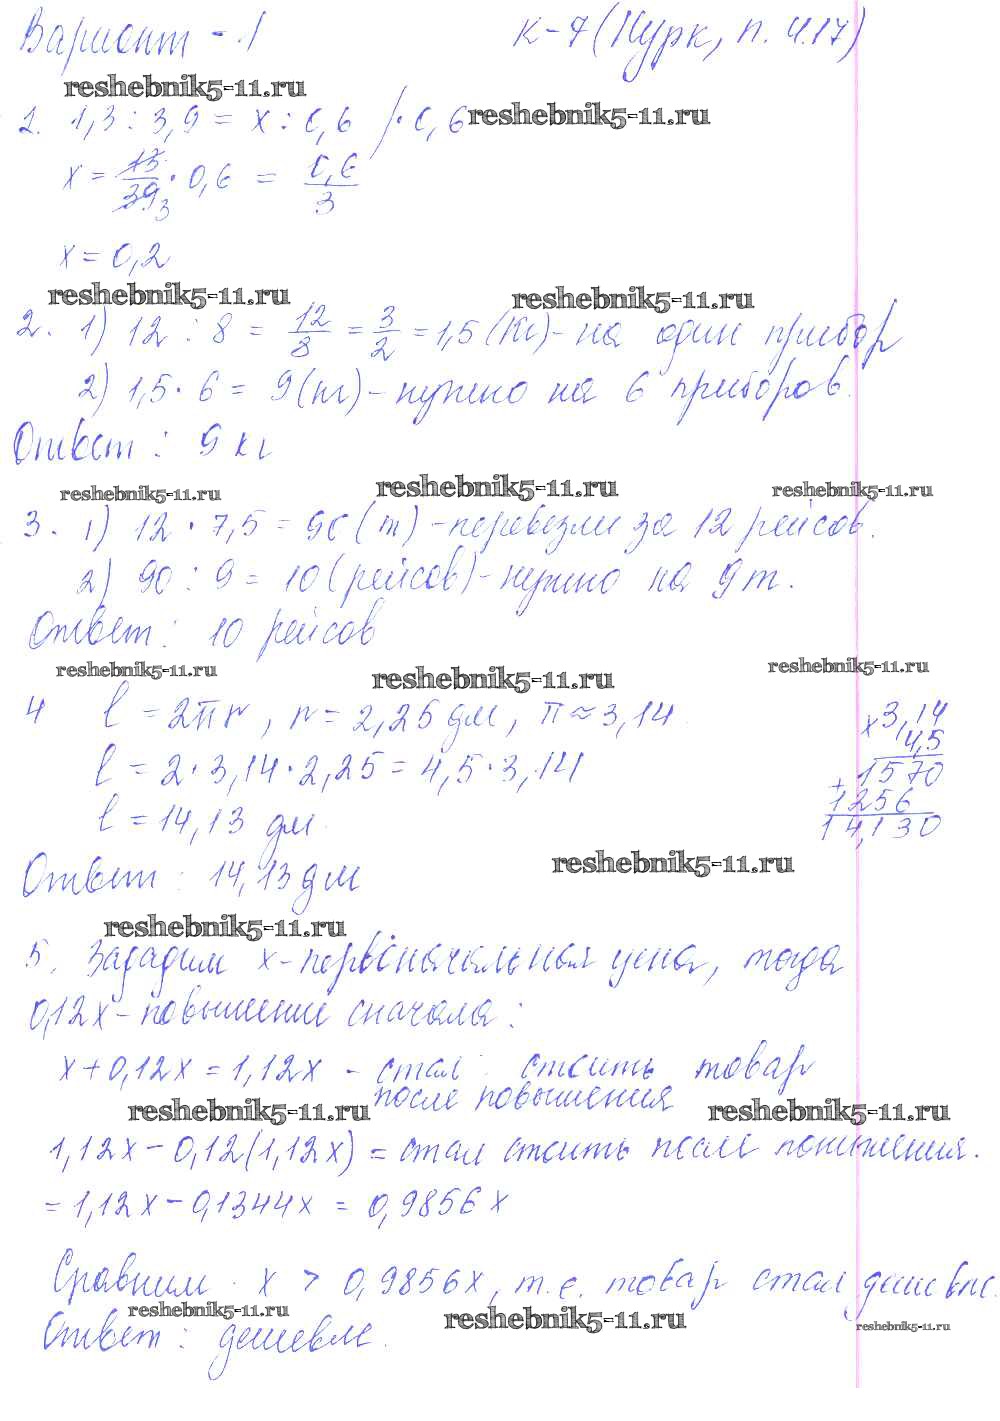 Вариант - 1 К-7 (Нурк, п. 4.17)
reshebnik5-11.ru
1. 1,3 : 3,9 = x : 0,6 / · 0,6 reshebnik5-11.ru
x = 13/39 3 · 0,6 = 0,6/3
x = 0,2
reshebnik5-11.ru reshebnik5-11.ru
2. 1) 12 : 8 = 12/8 = 3/2 = 1,5 (кг) - на один прибор
2) 1,5 · 6 = 9 (кг) - нужно на 6 приборов.
Ответ : 9 кг
reshebnik5-11.ru reshebnik5-11.ru reshebnik5-11.ru
3. 1) 12 · 7,5 = 90 (т) - перевезли за 12 рейсов.
2) 90 : 9 = 10 (рейсов) - нужно на 9 т.
Ответ : 10 рейсов
reshebnik5-11.ru reshebnik5-11.ru reshebnik5-11.ru
4 l = 2πr, r = 2,25 дм, π ≈ 3,14
l = 2 · 3,14 · 2,25 = 4,5 · 3,14
l = 14,13 дм
x 3,14
4,5
+ 1570
1256
14,130
Ответ : 14,13 дм
reshebnik5-11.ru
reshebnik5-11.ru
5. Зададим x - первоначальная цена, тогда
0,12x - повышение сначала :
x + 0,12x = 1,12x - стал стоить товар
после повышения
reshebnik5-11.ru reshebnik5-11.ru
1,12x - 0,12(1,12x) = стал стоить после понижения.
= 1,12x - 0,1344x = 0,9856x
Сравним x > 0,9856x, т.е. товар стал дешевле.
reshebnik5-11.ru reshebnik5-11.ru reshebnik5-11.ru
Ответ : дешевле.